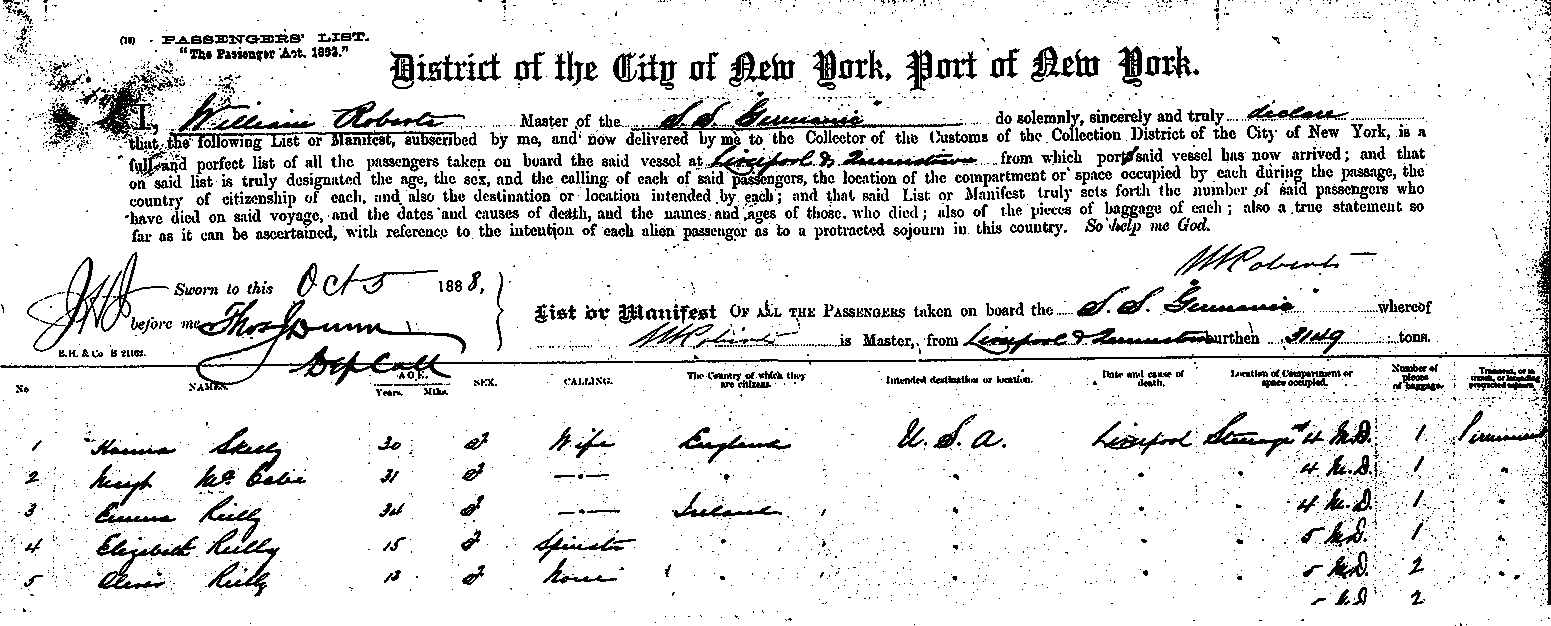 (18) PASSENGERS' LIST.
"The Passenger Act. 1882."
District of the City of New York, Port of New York.
I, William Roberts Master of the S.S. "Germanic" do solemnly, sincerely and truly declare
that the following List or Manifest, subscribed by me, and now delivered by me to the Collector of the Customs of the Collection District of the City of New York, is a
full and perfect list of all the passengers taken on board the said vessel at Liverpool & Queenstown from which port said vessel has now arrived; and that
on said list is truly designated the age, the sex, and the calling of each of said passengers, the location of the compartment or space occupied by each during the passage, the
country of citizenship of each, and also the destination or location intended by each; and that said List or Manifest truly sets forth the number of said passengers who
have died on said voyage, and the dates and causes of death, and the names and ages of those who died; also of the pieces of baggage of each; also a true statement so
far as it can be ascertained, with reference to the intention of each alien passenger as to a protracted sojourn in this country. So help me God.
W Roberts
Sworn to this Oct 5 1888,
before me Thos J Dunn
Dep Coll
B.H. & Co B 21162.
List or Manifest OF ALL THE PASSENGERS taken on board the S.S. "Germanic" whereof
W Roberts is Master, from Liverpool & Queenstown burthen 3149 tons.
No NAMES. AGE. Years. Mths. SEX. CALLING. The Country of which they are citizens. Intended destination or location. Date and cause of death. Location of Compartment or space occupied. Number of pieces of baggage. Transient, or in transit, or intending protracted sojourn.
1 Skelly 30 f Wife England U.S.A. Liverpool Steerage 4 M.D. 1
2 Mc Cabe 31 f 4 M.D. 1
3 Emma Reilly 34 f Ireland 4 M.D. 1
4 Elizabeth Reilly 15 f Spinster 5 M.D. 1
5 Reilly 13 f None 5 M.D. 2
5 M.D. 2